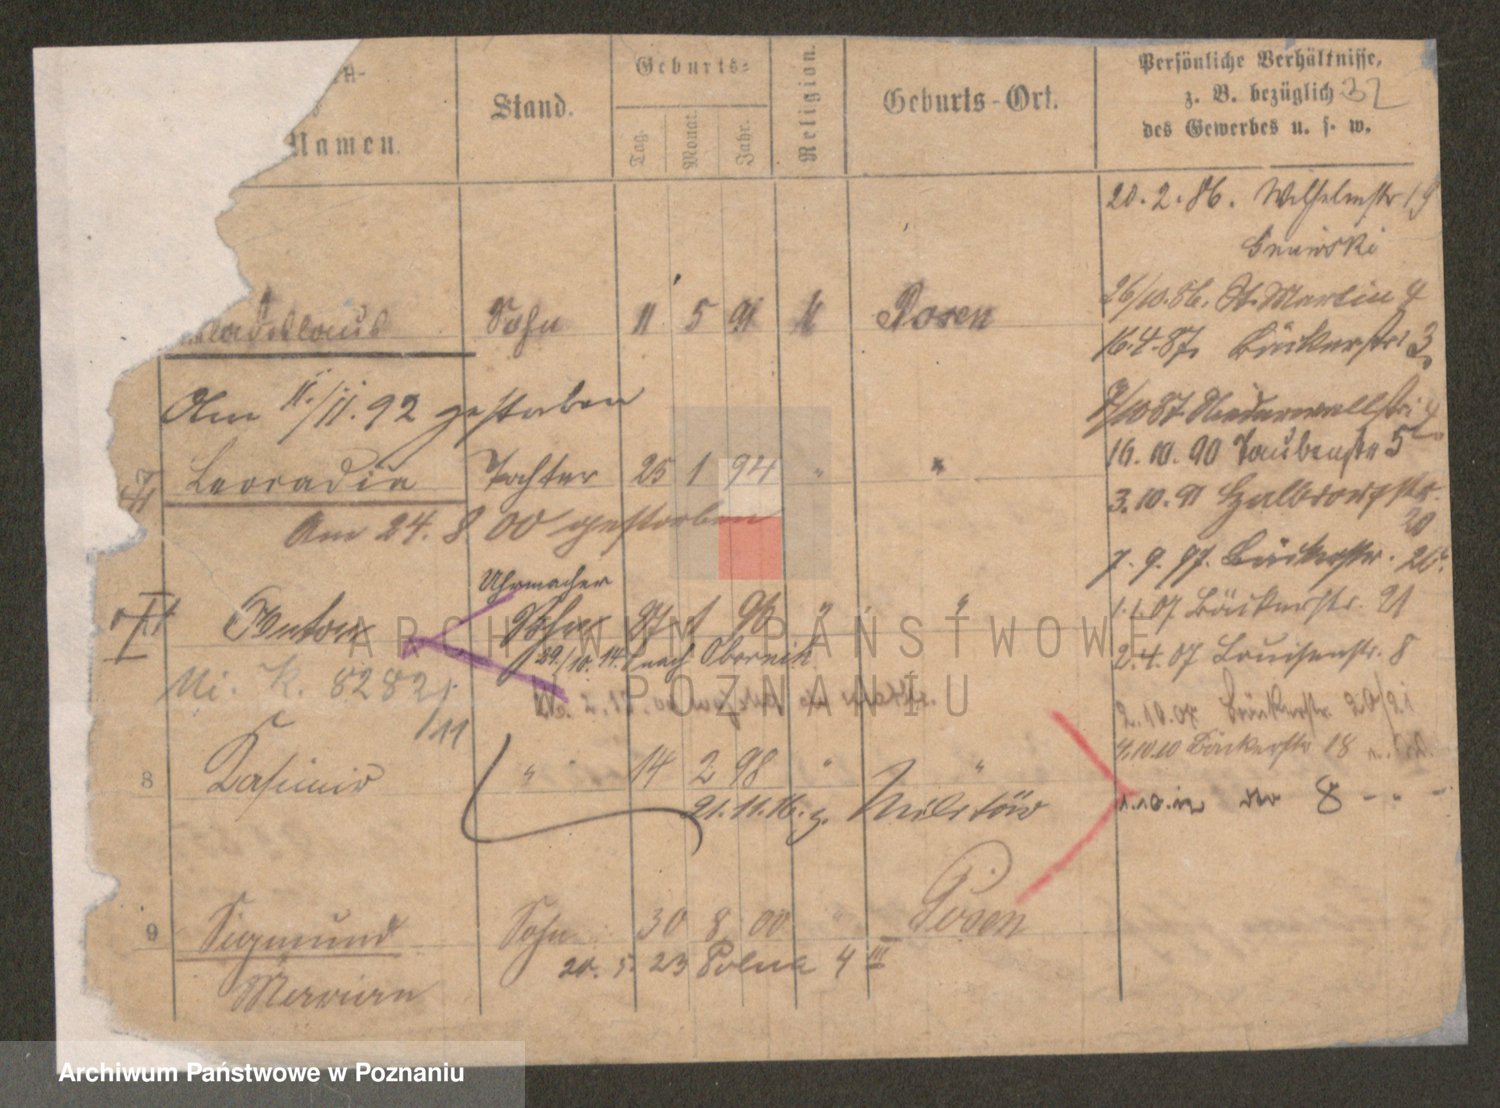 Namen.
Stand.
Geburts-
Tag.
Monat.
Jahr.
Religion.
Geburts-Ort.
Persönliche Verhältnisse,
z. B. bezüglich 32
des Gewerbes u. s. w.
20.2.86. Wilhelmstr 19
26/10.86. St. Martin 4
Sohn 11 5 91 k Posen
16.4.87. Bäckerstr 3
Am 11/11.92 gestorben
7/10 87 Niederwallstr
16.10.90 Taubenstr 5
Leocadia Tochter 25 1 94 " "
3.10.91 Halbdorfstr.
20
Am 24.8.00 gestorben
7.9.97. Bäckerstr. 20
Uhrmacher
Anton Sohn 27 1 96 " "
1.1.07 Bäckerstr. 21
29./10.14. nach Obornik
2.4.07 Louisenstr. 8
K. 8282
/11
2.10.08 Bäckerstr. 20/21
4.10.10 Bäckerstr 18
8 Kasimir " 14 2 98 " "
21.11.16. z. Militär
1.10.12 8
9 Sigmund Sohn 30 8 00 " Posen
20.5.23 Polna 4 III
Marian
ARCHIWUM PAŃSTWOWE
W POZNANIU
Archiwum Państwowe w Poznaniu